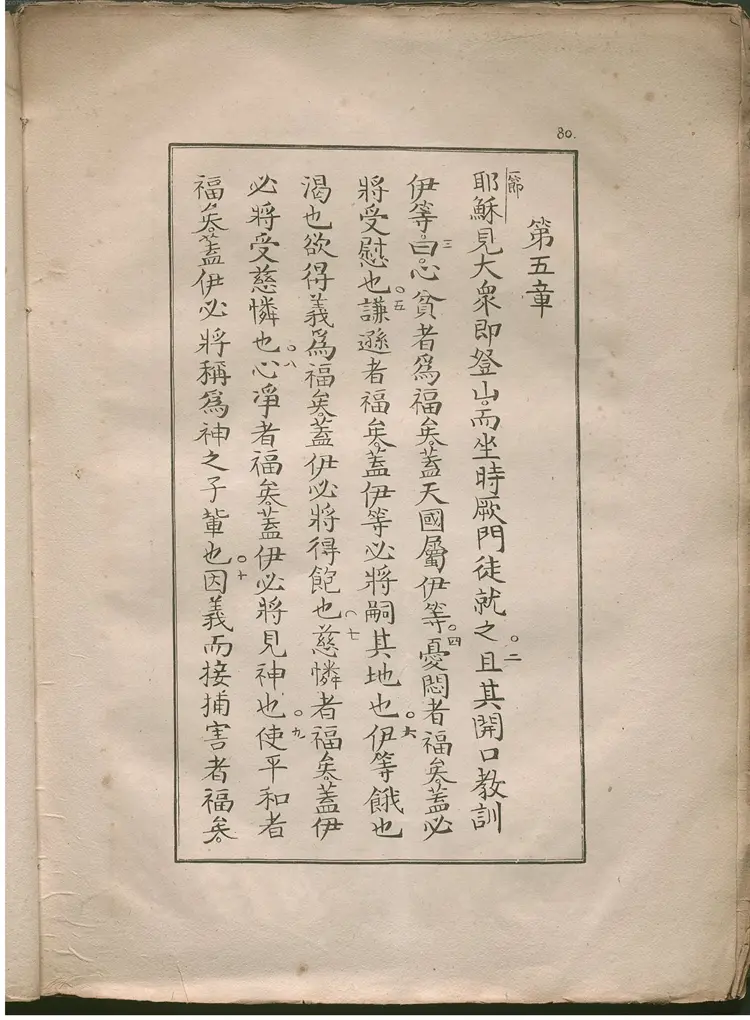 80.
第五章
一節 耶穌見大衆即登山。而坐時厥門徒就之。二且其開口教訓
伊等。曰。三心貧者爲福矣。蓋天國屬伊等。四憂悶者福矣。蓋必
將受慰也。五謙遜者福矣。蓋伊等必將嗣其地也。六伊等餓也
渴也欲得義爲福矣。蓋伊必將得飽也。七慈憐者福矣。蓋伊
必將受慈憐也。八心凈者福矣。蓋伊必將見神也。九使平和者
福矣。蓋伊必將稱爲神之子輩也。十因義而接捕害者福矣。